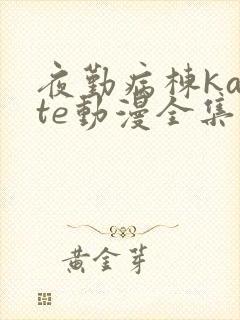 夜勤病栋Ka
te動漫全集
黄金芽